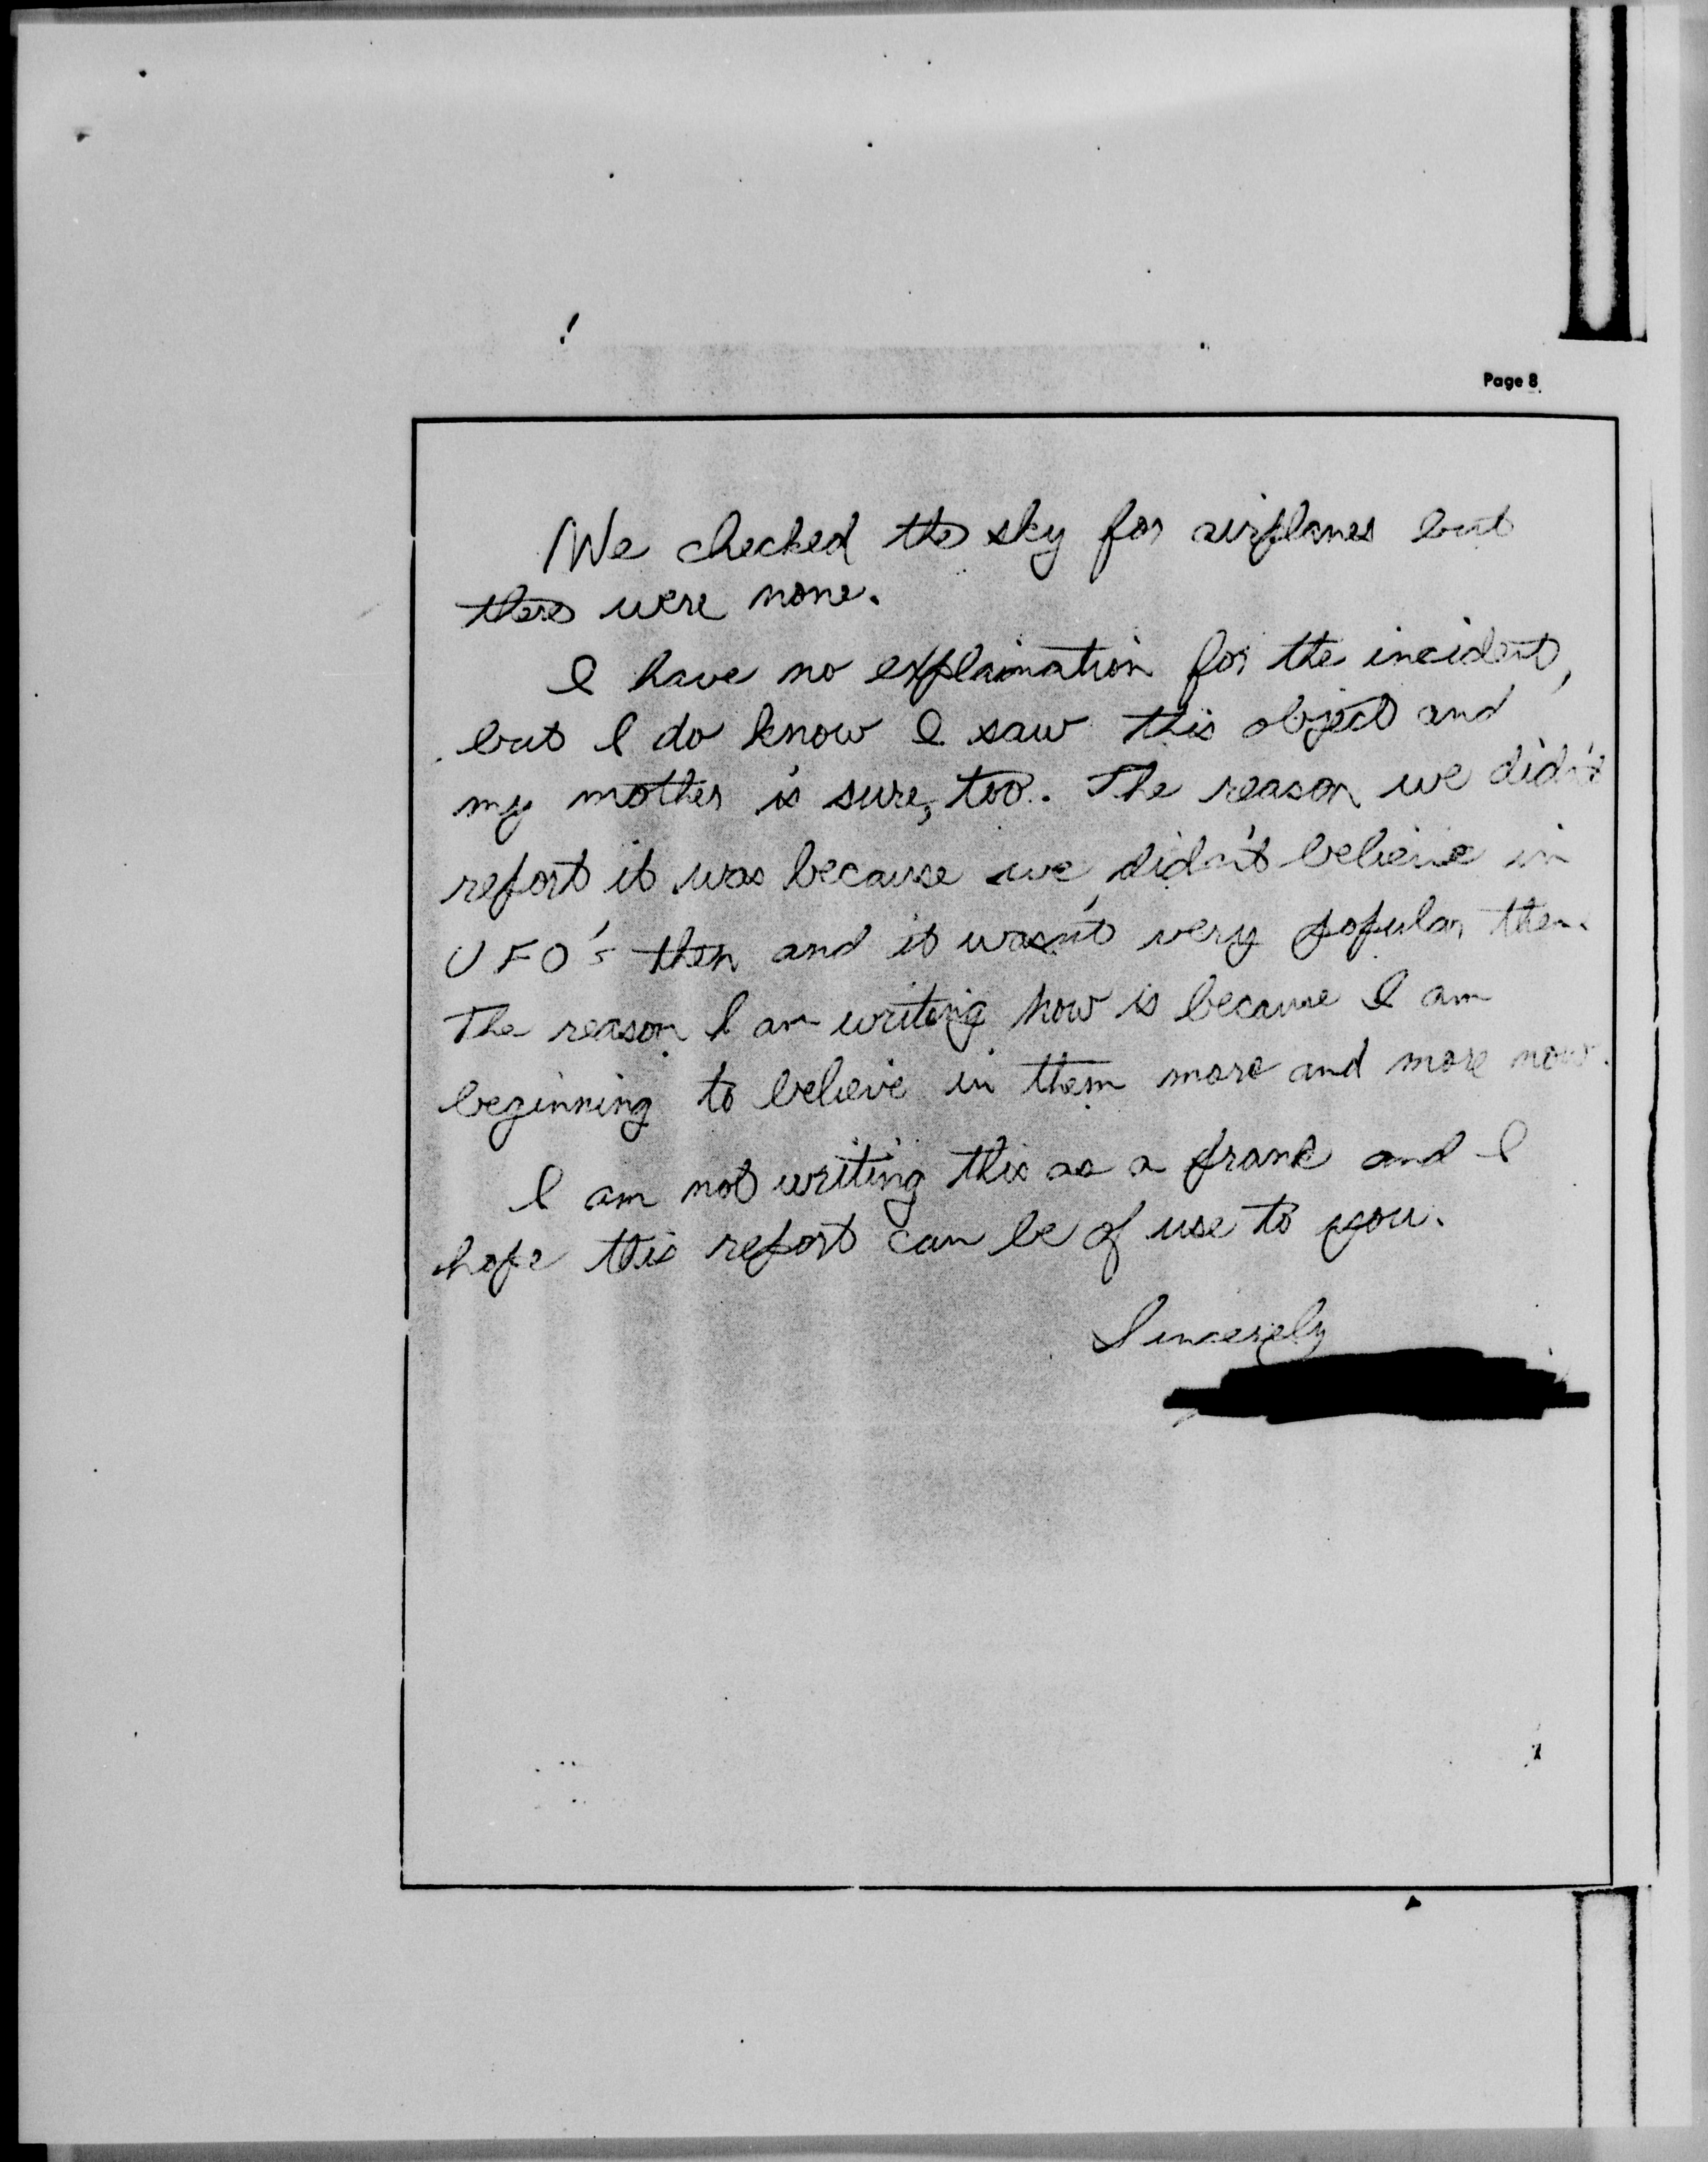 Page 8
We checked the sky for airplanes but
there were none.
I have no explaination for the incident,
but I do know I saw this object and
my mother is sure, too. The reason we didn't
report it was because we didn't believe in
UFO's then and it wasn't very popular then.
The reason I am writing now is because I am
beginning to believe in them more and more now.
I am not writing this as a prank and I
hope this report can be of use to you.
Sincerely